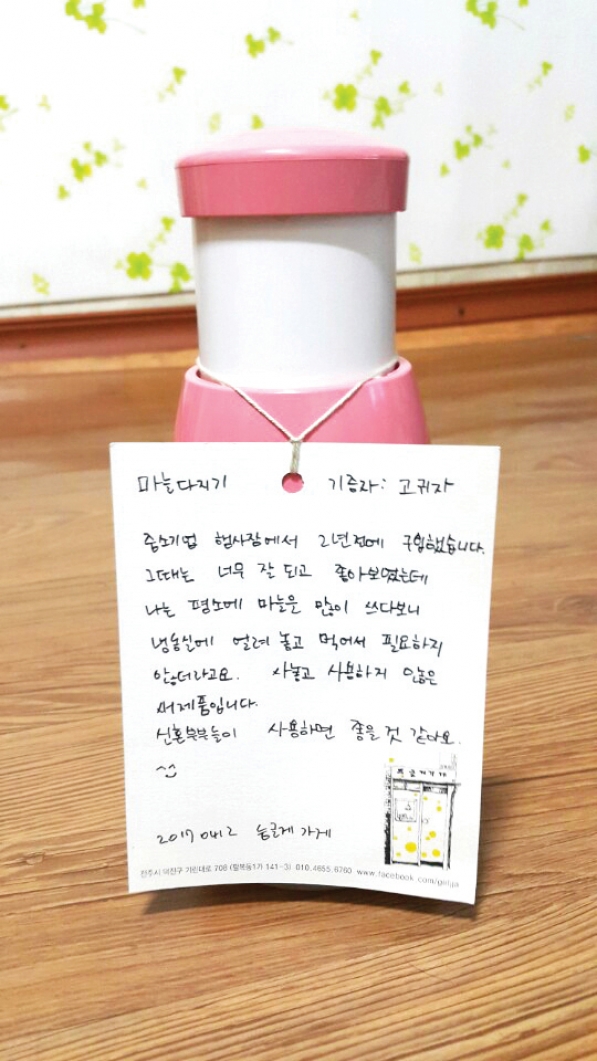 마늘다지기 기증자: 고귀자
중소기업 행사장에서 2년전에 구입했습니다.
그때는 너무 잘 되고 좋아보였는데
나는 평소에 마늘은 많이 쓰다보니
냉동실에 얼려 놓고 먹어서 필요하지
않더라고요. 사놓고 사용하지 않은
새제품입니다.
신혼부부들이 사용하면 좋을 것 같아요.
^^
2017 04 12 둥글게 가게
전주시 덕진구 가린대로 708 (팔복동1가 141-3) 010.4655.6760 www.facebook.com/gelja